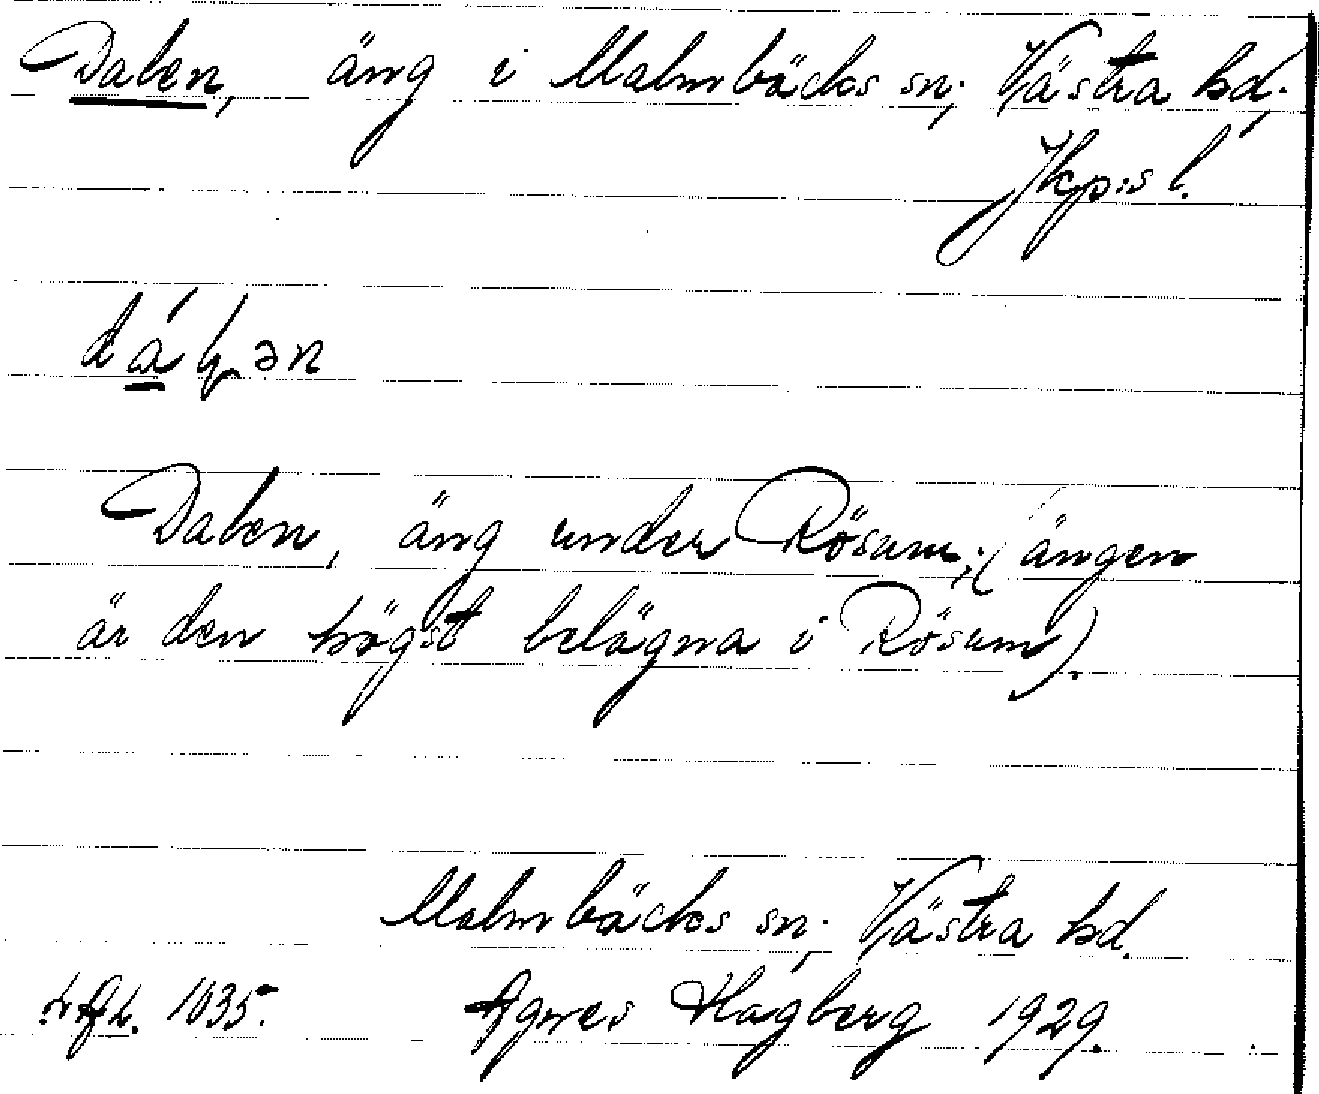 Dalen, äng i Malmbäcks sn; Västra hd;
Jkp:s l.
Dalen, äng under Rösum; (ängen
är den högst belägna i Rösum).
Malmbäcks sn; Västra hd.
1035. Agnes Hagberg 1929.